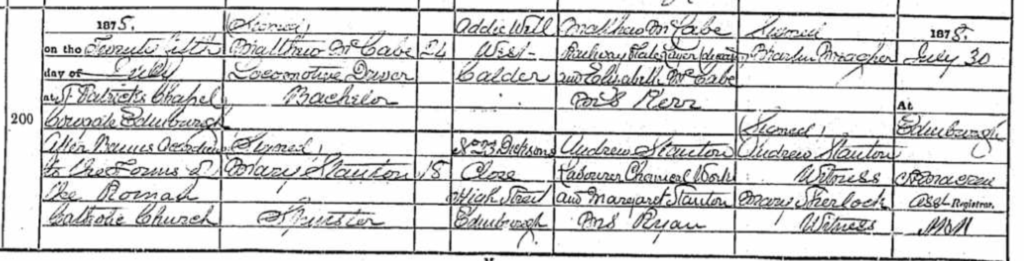 1875.
on the Twenty fifth
day of July
at St Patricks Chapel
Cowgate Edinburgh
After Banns According
to the Forms of
the Roman
Catholic Church
200
Signed,
Matthew McCabe
Locomotive Driver
Bachelor
Signed,
Mary Stanton
Spinster
24
18
Addie Well
West
Calder
No 23 Dicksons
Close
High Street
Edinburgh
Matthew McCabe
Railway Plate Layer
and Elizabeth McCabe
M.S Kerr
Andrew Stanton
Labourer Chemical Work
and Margaret Stanton
MS Ryan
Signed
Martin Meagher
Signed,
Andrew Stanton
Witness
Mary Sherlock
Witness
1875.
July 30
At
Edinburgh
Asst Registrar.